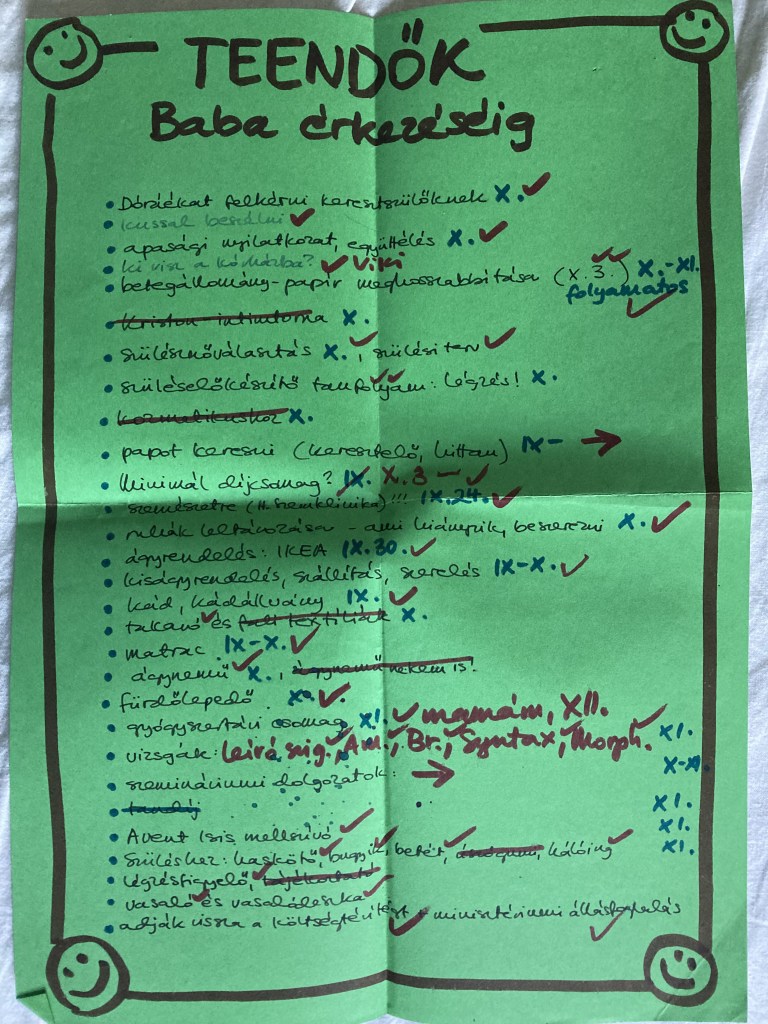 TEENDŐK
Baba érkezéséig
• Dóráékat felkérni keresztszülőknek X. ✓
• kussal beszélni ✓
• apasági nyilatkozat, együttélés X. ✓
• ki visz a kórházba? ✓ Viki
• betegállomány-papír meghosszabbítása (X. 3.) X.-XI.
folyamatos ✓
• Kriston intimtorna X.
• szülésznőválasztás X. ✓, szülési terv ✓
• szüléselőkészítő tanfolyam: légzés! X.
• kozmetikushoz X.
• papot keresni (keresztelő, hittan) IX- →
• Minimál díjcsomag? IX. X. 3 — ✓
• szemészetre (H. Szemklinika)!!! IX.24. ✓
• ruhák leltározása - ami hiányzik, beszerezni X. ✓
• ágyrendelés: IKEA IX.30. ✓
• kiságyrendelés, szállítás, szerelés IX-X. ✓
• kád, kádállvány IX. ✓
• takaró ✓ és fali textíliák X.
• matrac IX-X. ✓
• ágynemű ✓ X., ágynemű nekem is!
• fürdőlepedő X. ✓
• gyógyszertári csomag XI. ✓ mamám, XII.
• vizsgák: leíró sig. ✓, Am. ✓, Br. ✓, Syntax ✓, Morph. ✓ XI.
• szemináriumi dolgozatok: → X-XI.
• tandíj XI.
• Avent Isis mellszívó ✓ XI.
• Szüléshez: haskötő ✓, bugyik ✓, betét ✓, hálóing ✓ XI.
• légzésfigyelő ✓, tájékoztató
• vasaló ✓ és vasalódeszka ✓
• adják vissza a költségtérítést ✓ + minisztériumi állásfoglalás ✓